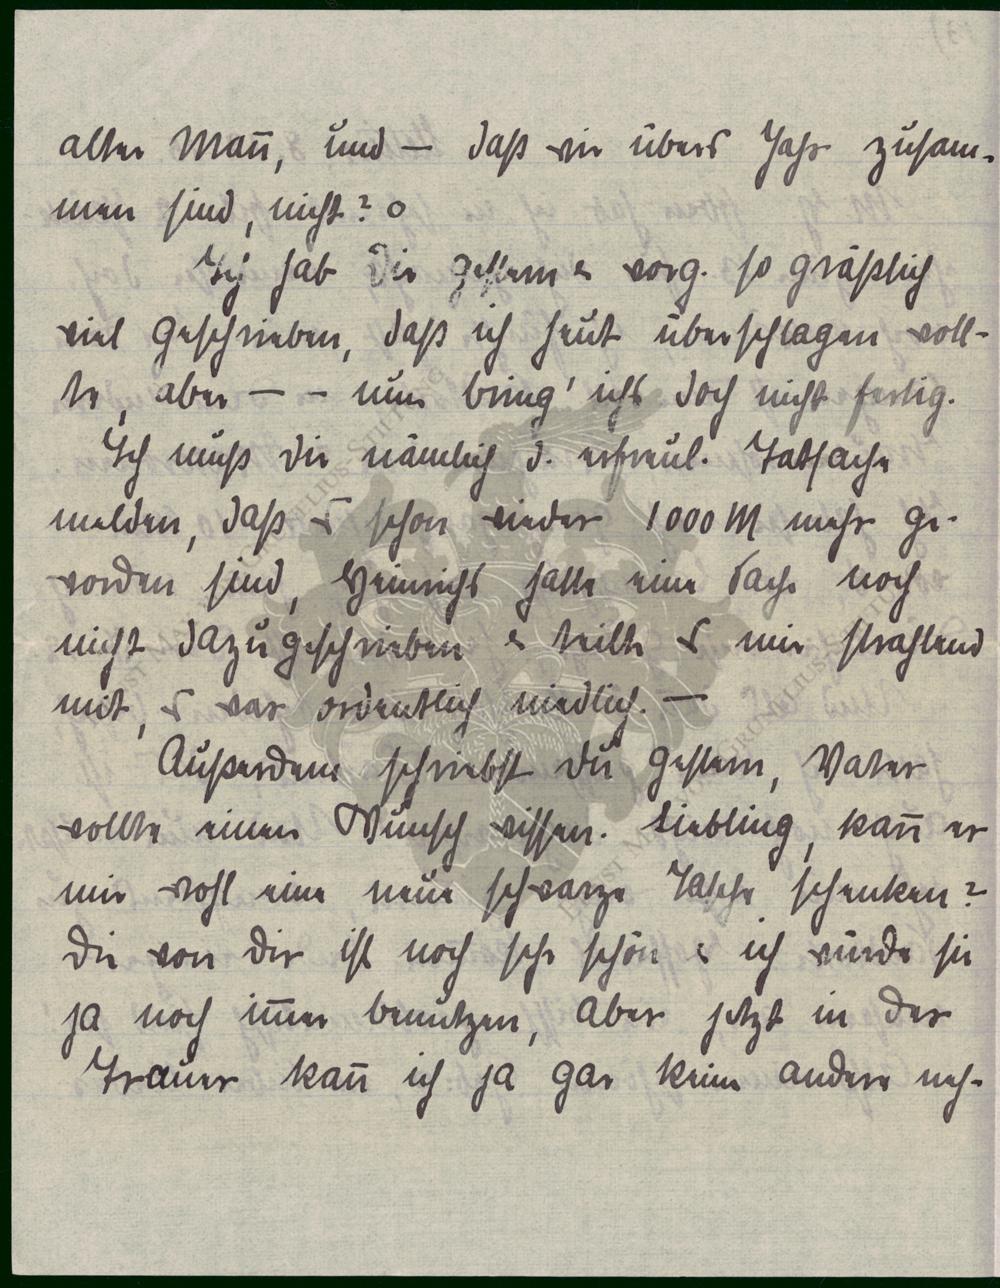 alter Mañ, und — daß wir übers Jahr zusam-
men sind, nicht? o
Ich hab Dir gestern & vorg. so gräßlich
viel geschrieben, daß ich heut überschlagen woll-
te, aber — – nun bring' ichs doch nicht fertig.
Ich muß Dir nämlich d. erfreul. Tatsache
melden, daß es schon wieder 1000 M mehr ge-
worden sind, Heinrichs hatte eine Sache noch
nicht dazugeschrieben & teilte es mir strahlend
mit, es war ordentlich niedlich. —
Außerdem schriebst Du gestern, Vater
wollte einen Wunsch wissen. Liebling, kañ er
mir wohl eine neue schwarze Tasche schenken?
Die von Dir ist noch sehr schön & ich würde sie
ja noch im̄er benutzen, aber jetzt in der
Trauer kañ ich ja gar keine andere neh-